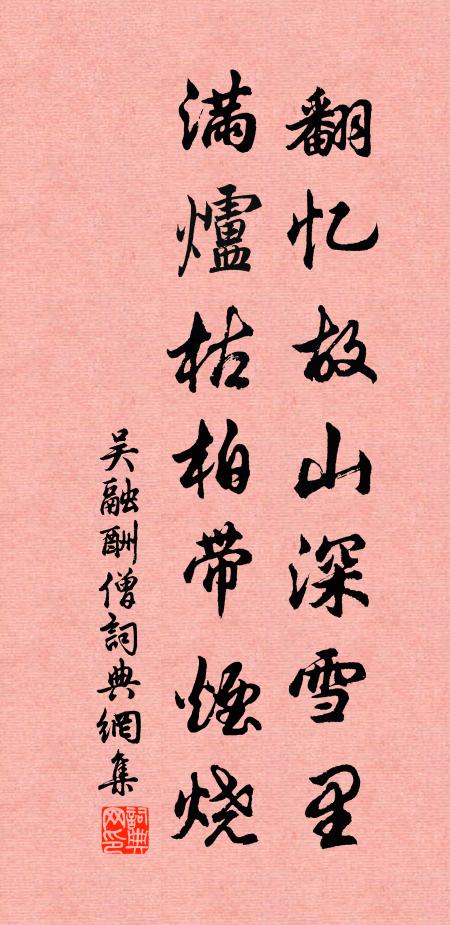 翻忆故山深雪里
满爐枯柏带烟烧
吴融酬僧詞典網集
詞典网印